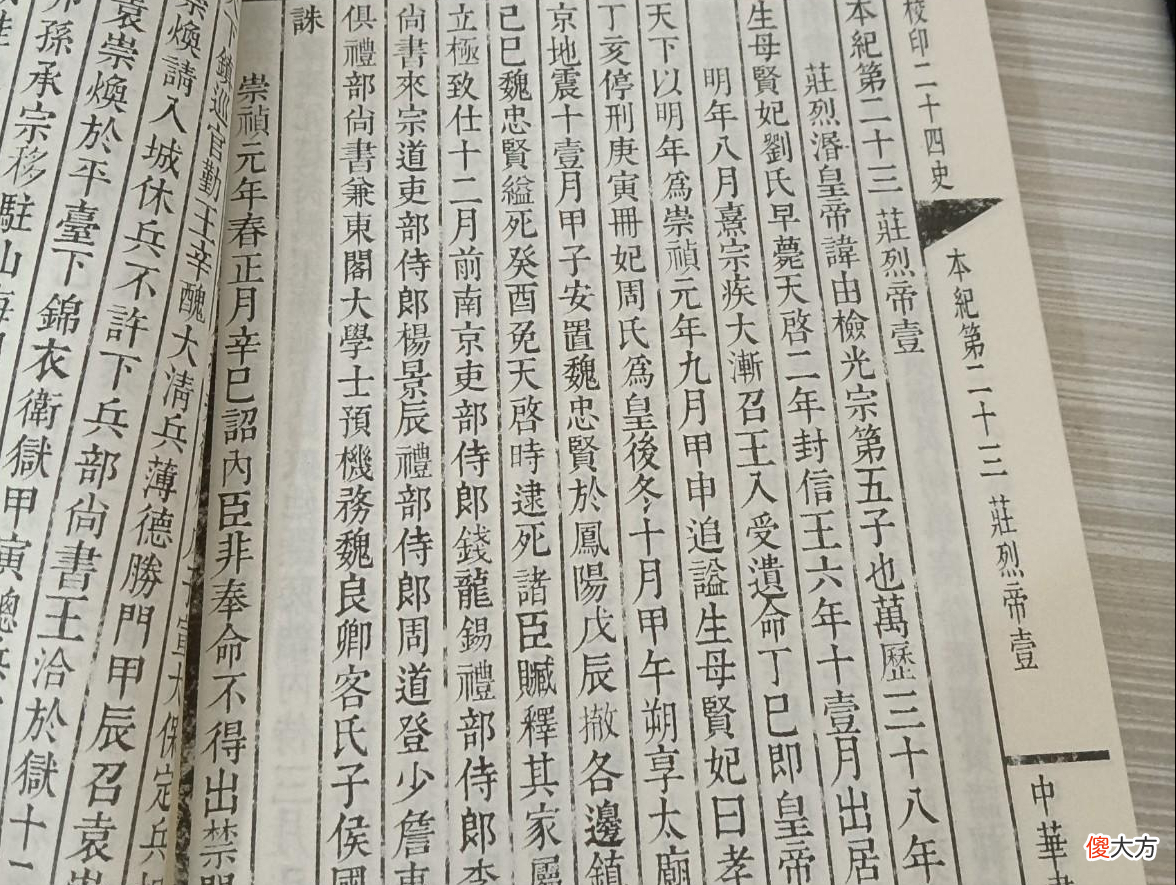 校印二十四史
本紀第二十三 莊烈帝壹
中華
本紀第二十三 莊烈帝壹
莊烈湣皇帝諱由檢光宗第五子也萬歷三十八年
生母賢妃劉氏早薨天啓二年封信王六年十壹月出居
明年八月熹宗疾大漸召王入受遺命丁巳即皇帝
天下以明年爲崇禎元年九月甲申追謚生母賢妃曰孝
丁亥停刑庚寅冊妃周氏爲皇後冬十月甲午朔享太廟
京地震十壹月甲子安置魏忠賢於鳳陽戊辰撤各邊鎮
己巳魏忠賢縊死癸酉免天啓時逮死諸臣贓釋其家屬
立極致仕十二月前南京吏部侍郎錢龍錫禮部侍郎李
尚書來宗道吏部侍郎楊景辰禮部侍郎周道登少詹東
俱禮部尚書兼東閣大學士預機務魏良卿客氏子侯國
誅
崇禎元年春正月辛巳詔內臣非奉命不得出禁門
鎮巡官勤王辛醜大清兵薄德勝門甲辰召袁崇
崇煥請入城休兵不許下兵部尚書王洽於獄十一
袁崇煥於平臺下錦衣衛獄甲寅總兵
孫承宗移駐山海
傻大方